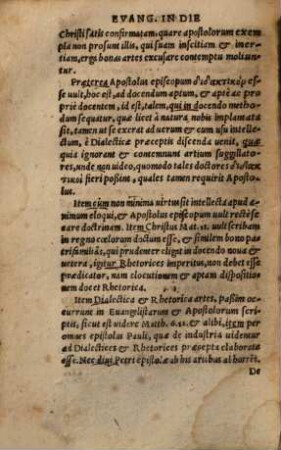 EVANG. IN DIE
Christi satis confirmatam, quare apostolorum exem
pla non prosunt illis, qui suam inscitiem & iner
tiam, ergò bonas artes excusare contemptu moliun
tur.
Præterea Apostolus episcopum διδακτικὸν es
se uult, hoc est, ad docendum aptum, & apte ac pro
priè docentem, id est, talem, qui in docendo metho
dum sequatur, quæ licet à natura nobis implanta
sit, tamen ut se exerat ad uerum & cum usu intelle
ctum, è Dialecticæ præceptis discenda uenit, quæ
quia ignorant & contemnunt artium suggillato
res, unde non uideo, quomodo tales doctores διδακ
τικοὶ fieri poßint, quales tamen requirit Aposto
lus.
Item cùm non minima uirtus sit intellecta apud a
nimum eloqui, & Apostolus episcopum uult rectè se
care doctrinam. Item Christus Mat. 13. uult scribam
in regno cœlorum doctum esse, & similem homo pa
trifamiliâs, qui prudenter elignt in docendo noua &
uetera, igitur Rhetorices imperitus, non debet esse
prædicator, nam elocutionem & aptam dispositio
nem docet Rhetorica.
Item Dialectica & Rhetorica artes, paßim oc
currunt in Euangelistarum & Apostolorum scri
ptis, sicut est uidere Matth. 6. 12. & alibi, item per
omnes epistolas Pauli, quæ de industria uidentur
ad Dialectices & Rhetorices præcepta elaboratæ
esse. Nec diui Petri epistolæ ab his artibus abhorrēt.
De